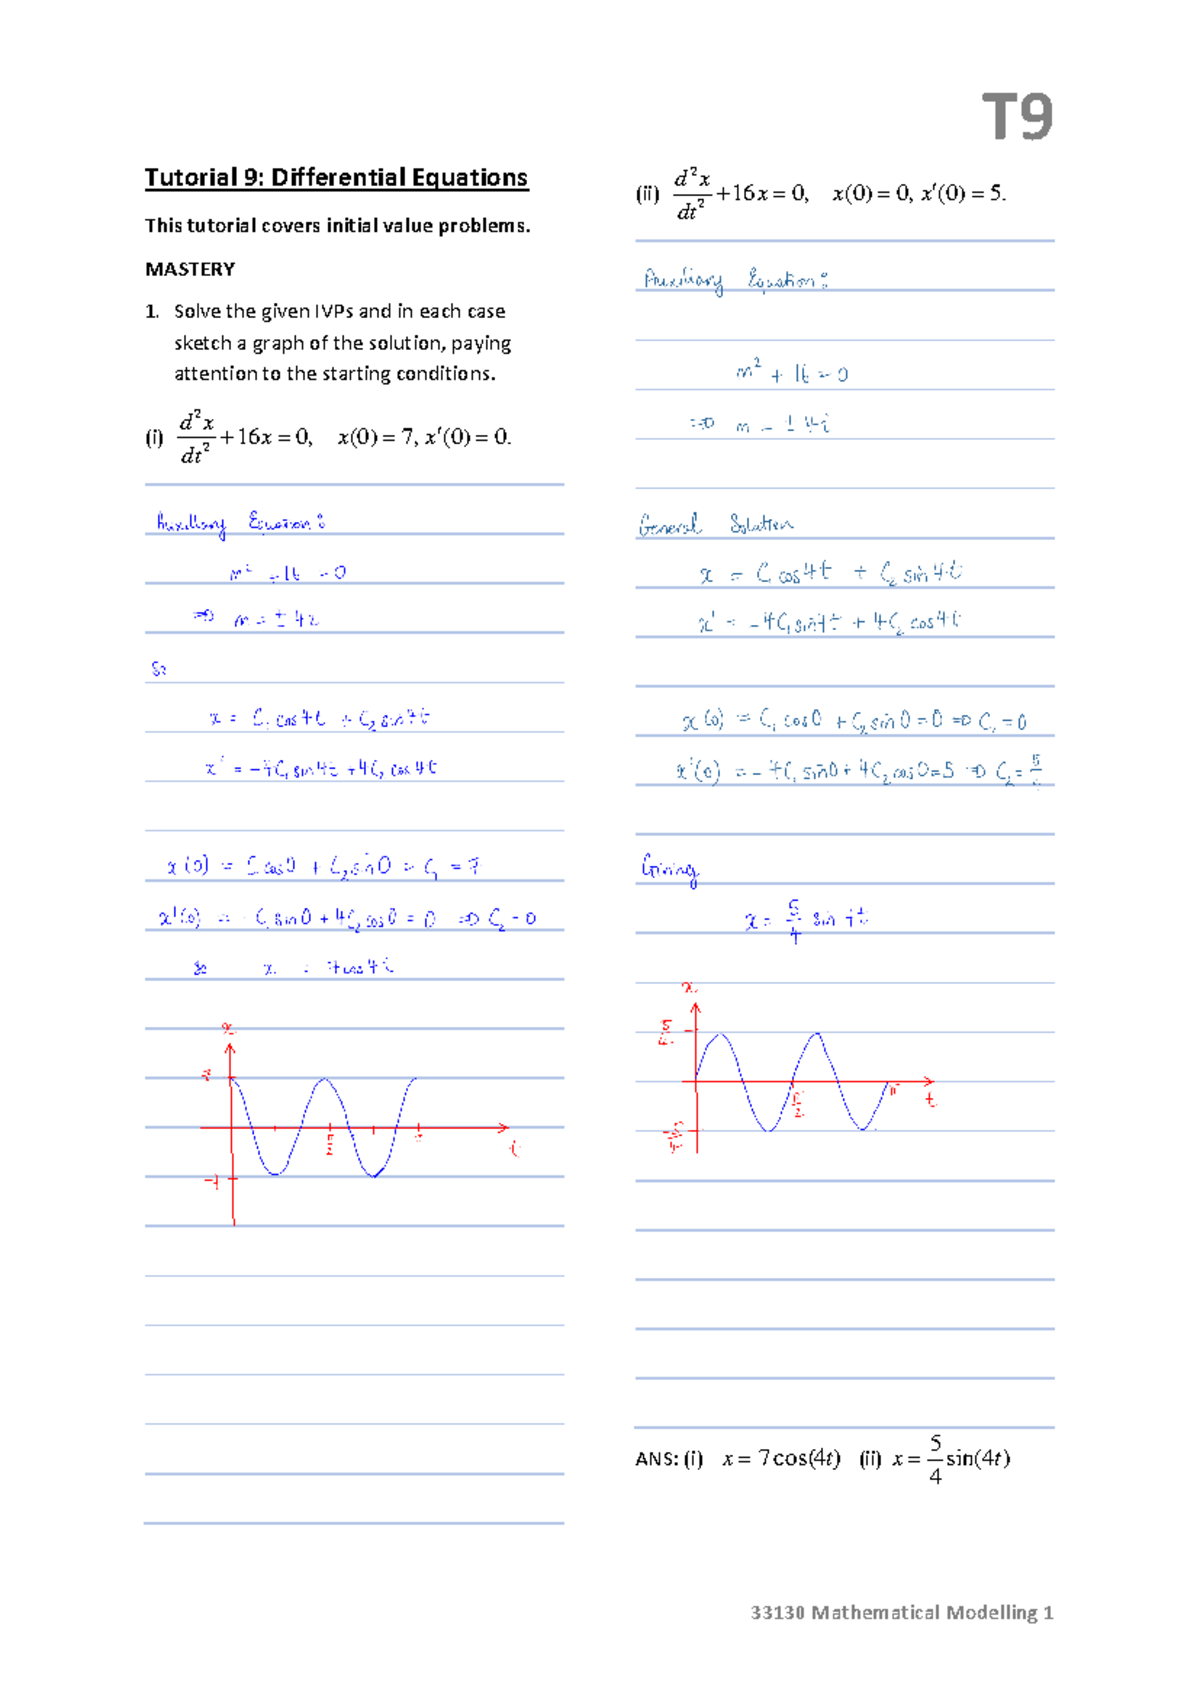 T9
Tutorial 9: Differential Equations
This tutorial covers initial value problems.
MASTERY
1. Solve the given IVPs and in each case
sketch a graph of the solution, paying
attention to the starting conditions.
(i) d²x/dt² + 16x = 0, x(0) = 7, x′(0) = 0.
Auxillary Equation:
m² + 16 = 0
⇒ m = ± 4i
So
x = C₁ cos4t + C₂ sin4t
x' = -4C₁ sin4t + 4C₂ cos4t
x(0) = C₁ cos0 + C₂ sin0 = C₁ = 7
x'(0) = - C₁ sin0 + 4C₂ cos0 = 0 ⇒ C₂ = 0
So x = 7cos4t
x
7
π/2
π
t
-7
(ii) d²x/dt² + 16x = 0, x(0) = 0, x′(0) = 5.
Auxiliary Equation:
m² + 16 = 0
⇒ m = ± 4i
General Solution
x = C₁ cos4t + C₂ sin4t
x' = -4C₁ sin4t + 4C₂ cos4t
x(0) = C₁ cos0 + C₂ sin0 = 0 ⇒ C₁ = 0
x'(0) = -4C₁ sin0 + 4C₂ cos0 = 5 ⇒ C₂ = 5/4
Giving
x = 5/4 sin 4t
x
5/4
π/2
π
t
-5/4
ANS: (i) x = 7cos(4t) (ii) x = 5/4 sin(4t)
33130 Mathematical Modelling 1